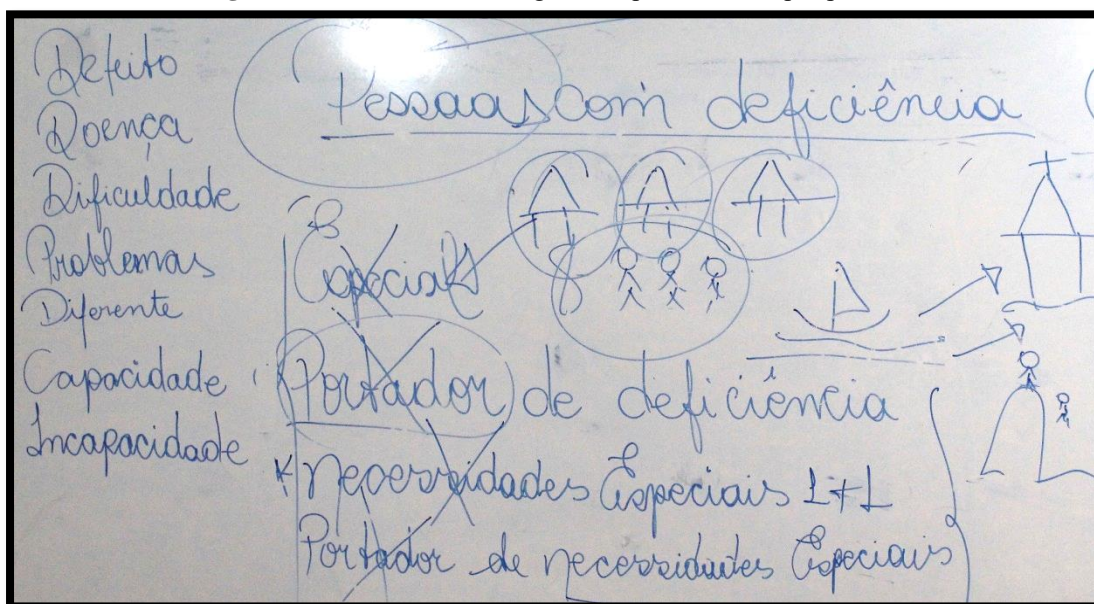 Defeito
Doença
Dificuldade
Problemas
Diferente
Capacidade
Incapacidade
Pessoas com deficiência
Especiais
Portador de deficiência
Necessidades Especiais 1+1
Portador de necessidades Especiais